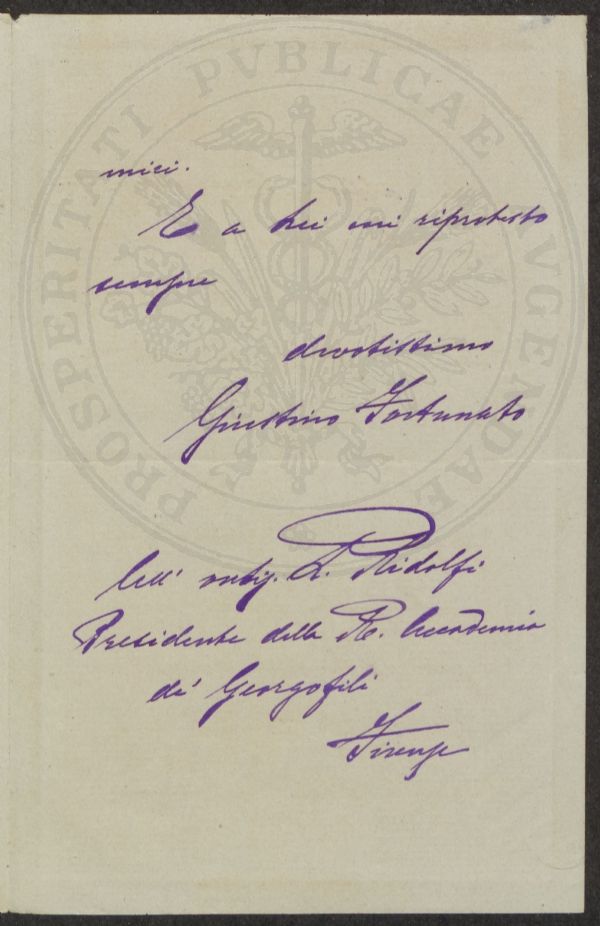 PROSPERITATI PVBLICAE AVGENDAE
miei.
E a Lei mi riprotesto
sempre
devotissimo
Giustino Fortunato
All' onlig. L. Ridolfi
Presidente della R. Accademia
de' Georgofili
Firenze